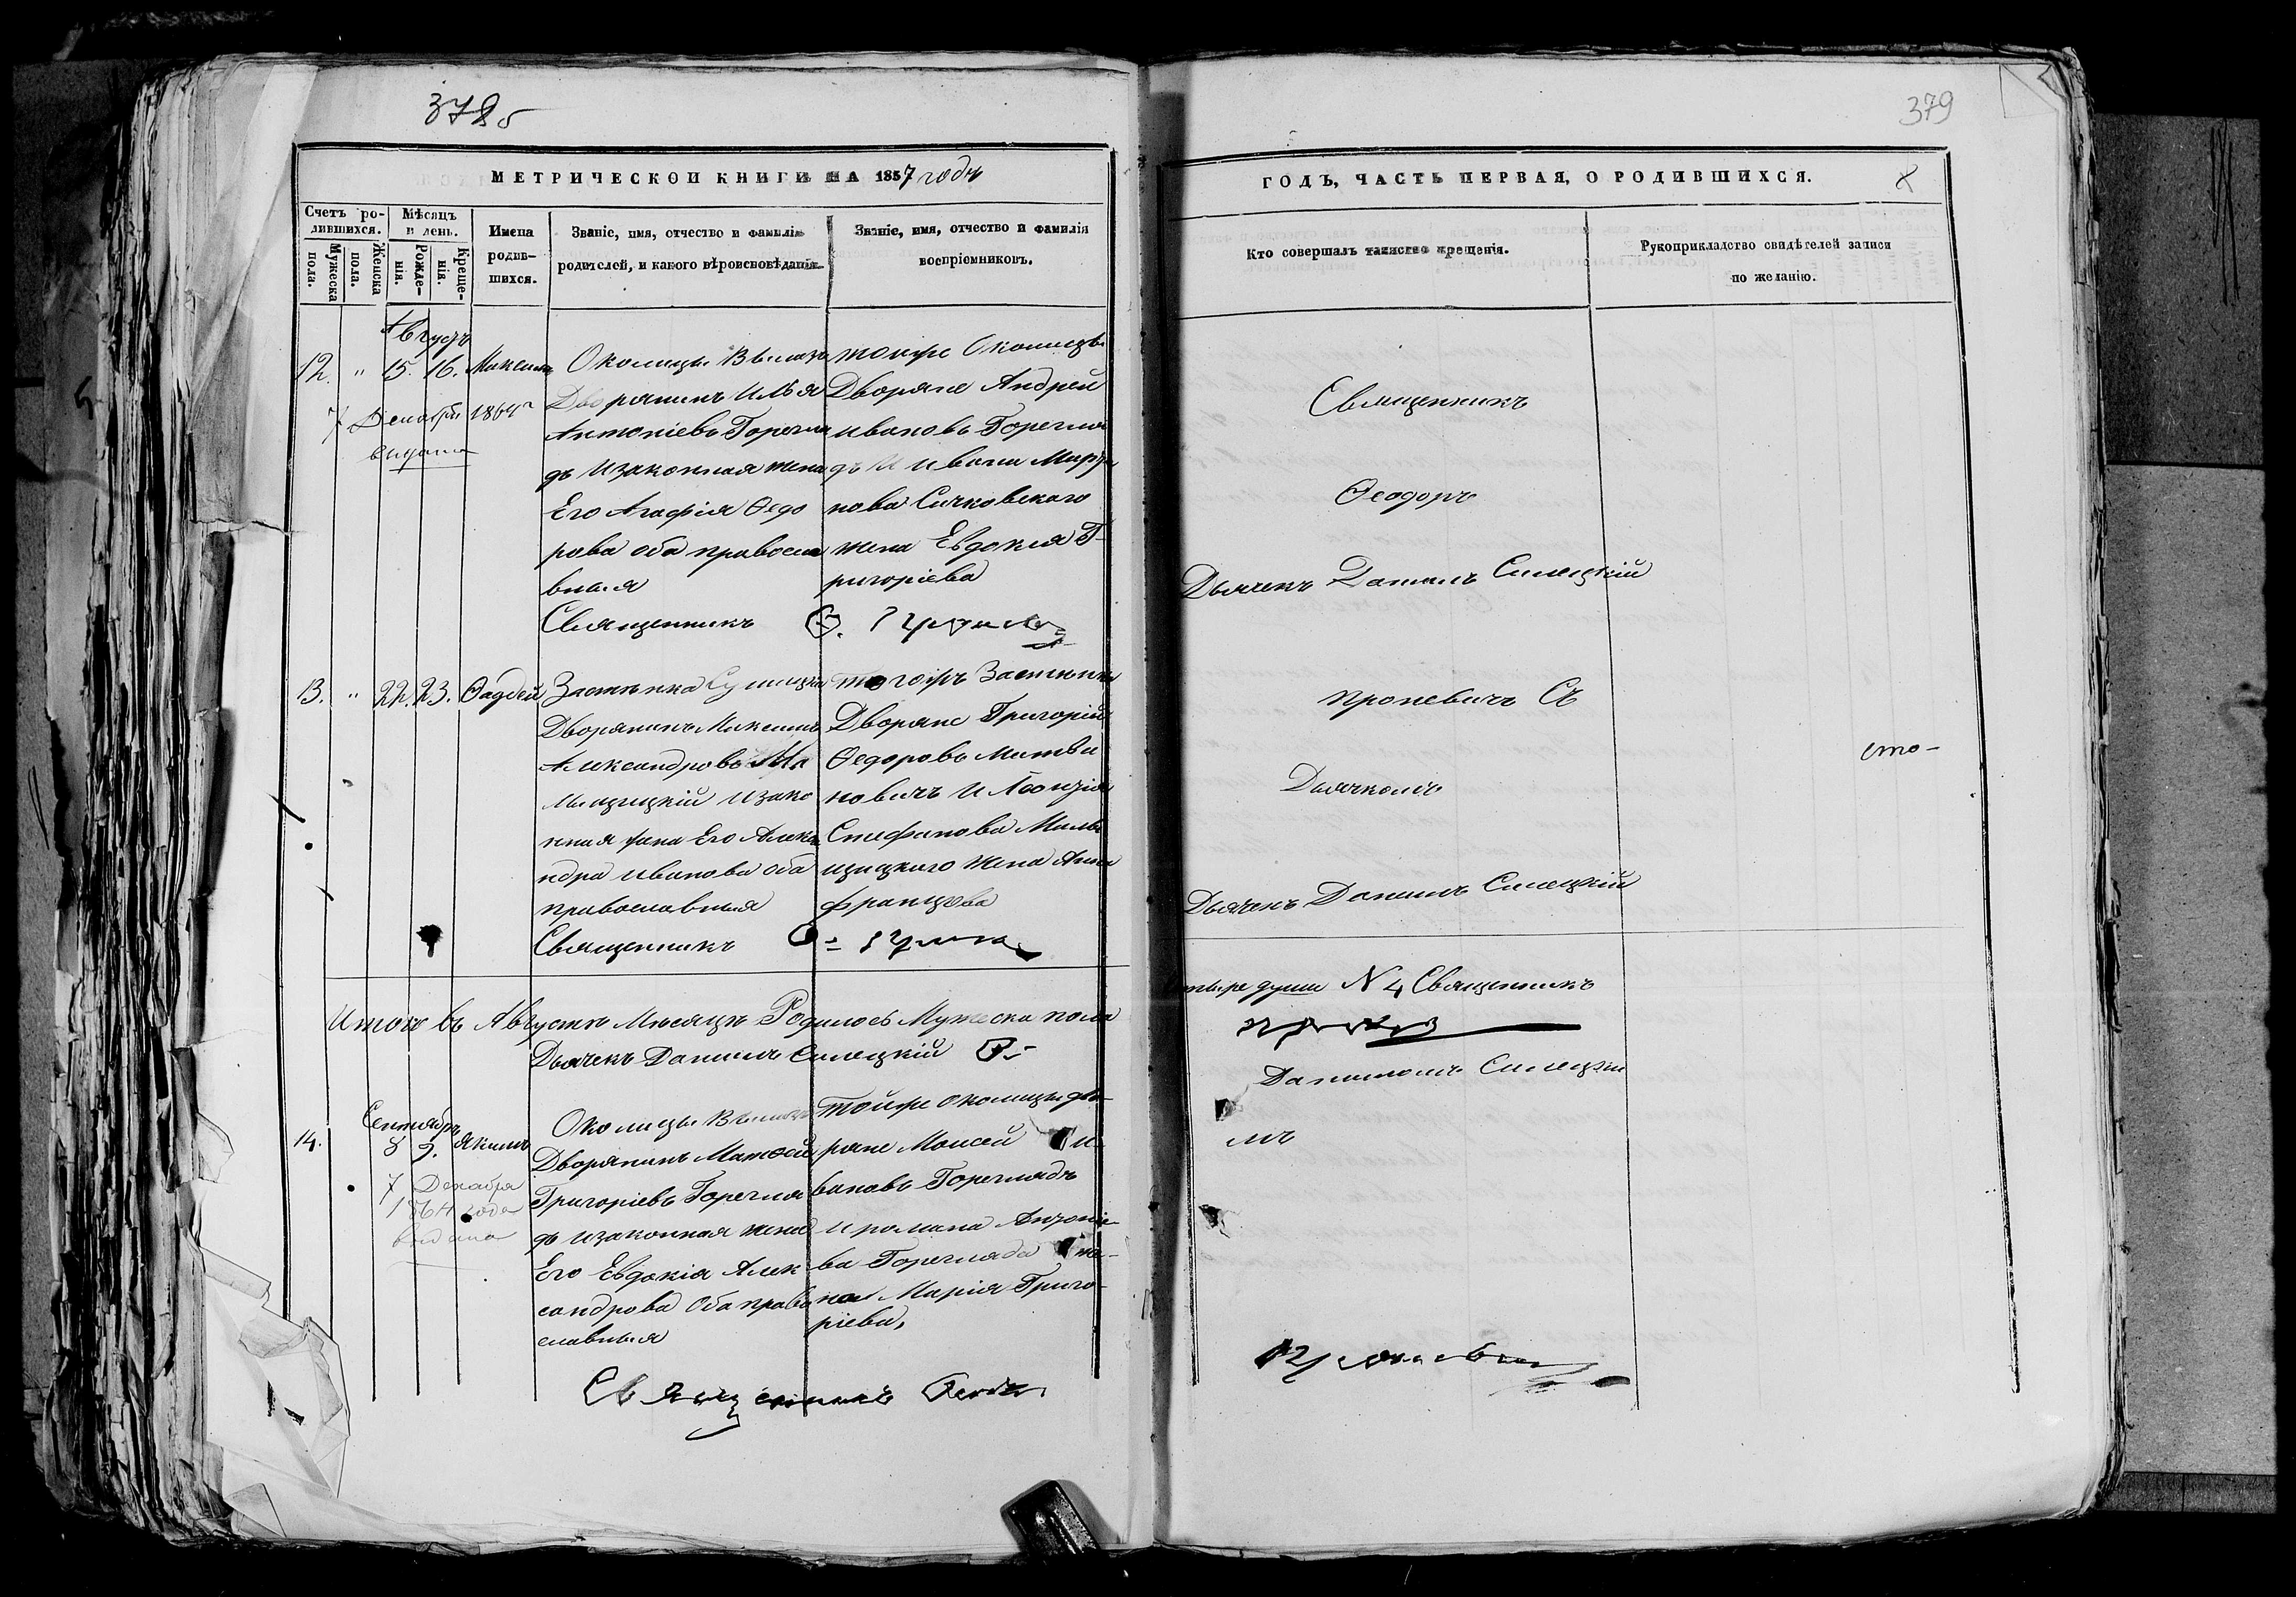 378 б
МЕТРИЧЕСКОЙ КНИГИ НА 1857 годъ
Счетъ ро-
дившихся.
Мѣсяцъ
и день.
Мужеска
пола.
Женска
пола.
Рожде-
нія.
Креще-
нія.
Имена
родив-
шихся.
Званіе, имя, отчество и фамилія
родителей, и какого вѣроисповѣданія.
Званіе, имя, отчество и фамилія
воспріемниковъ.
Августъ
12. " 15. 16. Максимъ
7 Декабря 1864 г
выдана
Околицы
Дворянинъ Илья
Антоніевъ Горегля
дъ и законная жена
Его Агафія Ѳедо
рова оба правосла
вныя
Священникъ Ѳ.
тойже Околицы
Дворяне Андрей
Ивановъ Горегля
дъ и Ивана
нова Сичковскаго
жена Евдокія Г
ригоріева
13. " 22. 23. Ѳаддей
Застѣнка
Дворянинъ Максимъ
Александровъ Ма
льщицкій и зако
нная жена Его Алекса
ндра Иванова оба
православныя
Священникъ
тогожъ Застѣнка
Дворяне Григорій
Ѳедоровъ Литви
новичъ и
Стефанова Маль
щицкого жена Анна
Францова
Итого въ Августѣ Мѣсяцѣ Родилось Мужеска пола
Дьячекъ Даніилъ Силецкій Ѳ.
Сентябрь
14. 8 9. Якимъ
7 Декабря
1864 года
выдана
Околицы
Дворянинъ Матѳей
Григоріевъ Горегля
дъ и законная жена
Его Евдокія Алек
сандрова оба право
славныя
тойже околицы дво-
ряне Моисей И-
вановъ Гореглядъ
и Романа Антоніе-
ва Горегляда же-
на Марія Григо-
ріева,
Священникъ Ѳеодоръ
379
ГОДЪ, ЧАСТЬ ПЕРВАЯ, О РОДИВШИХСЯ.
Кто совершалъ таинство крещенія.
Рукоприкладство свидѣтелей записи
по желанію.
Священникъ
Ѳеодоръ
Дьячекъ Даніилъ Силецкій
Проневичъ Съ
сто-
Дьячкомъ
Дьячекъ Даніилъ Силецкій
тыре души N 4 Священникъ
Даніиломъ Силецки
мъ